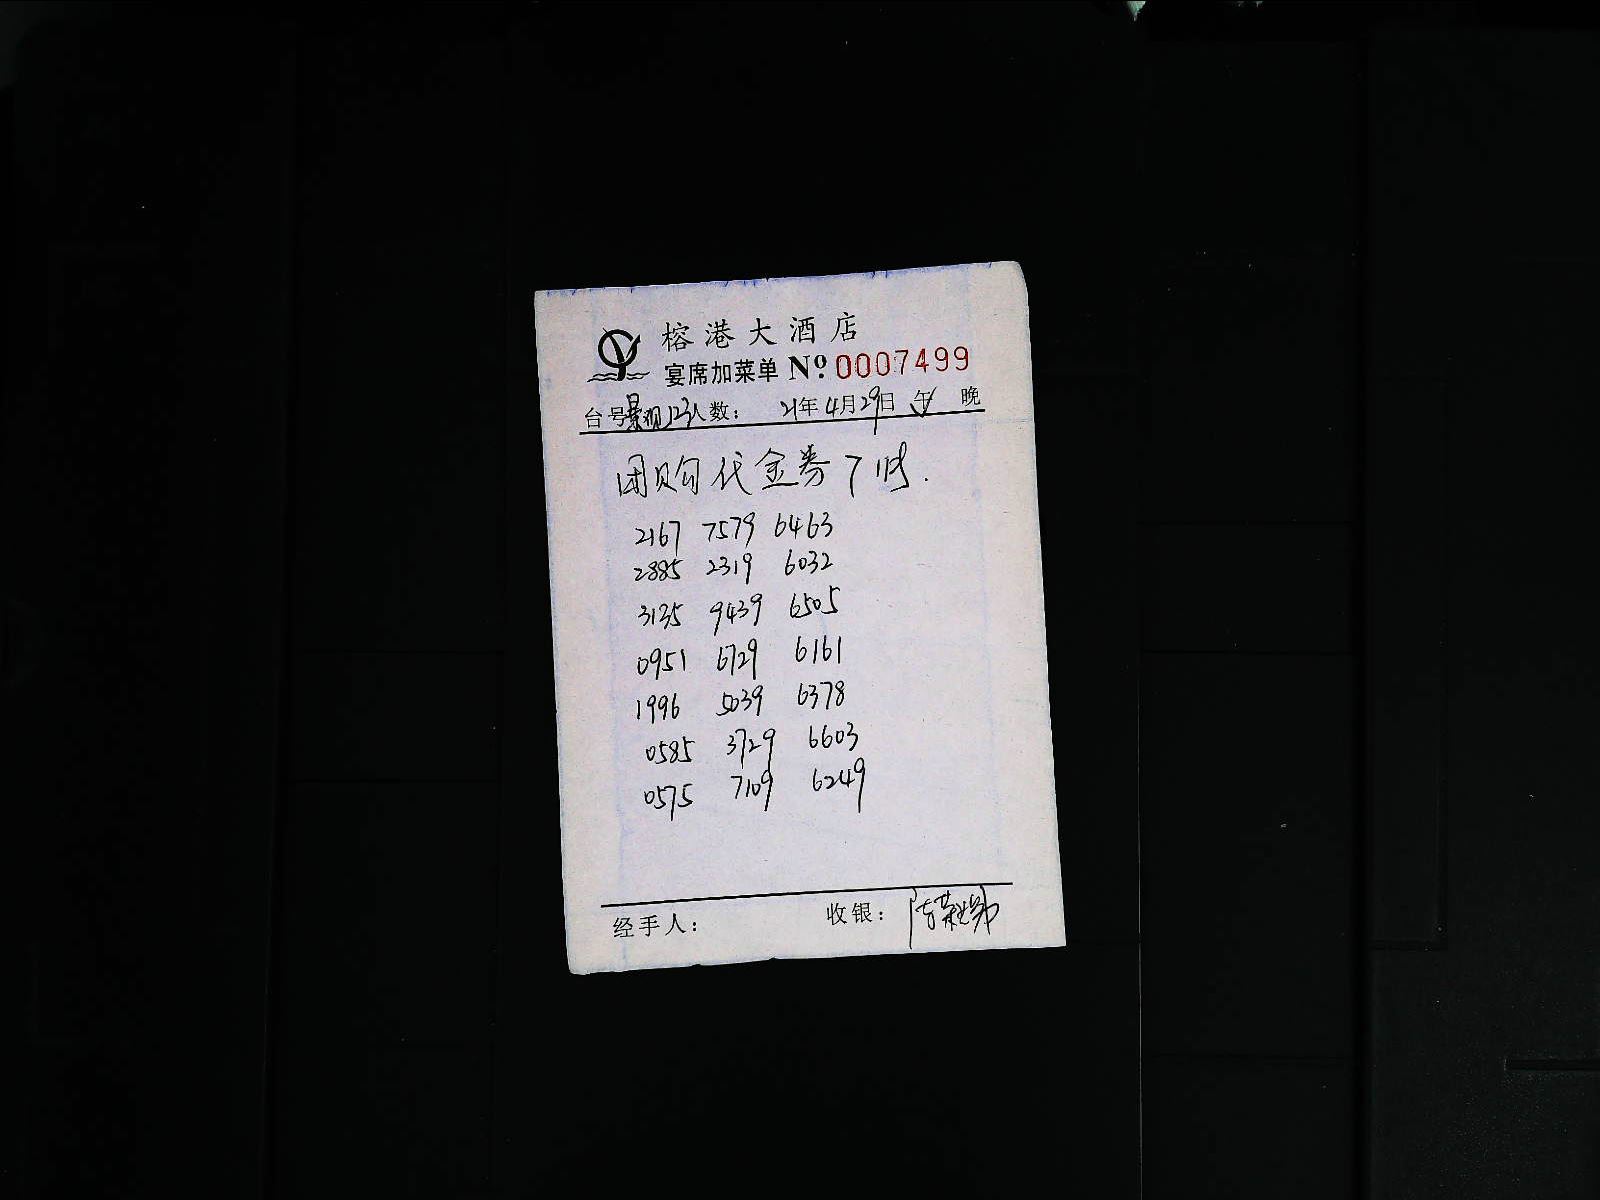 榕港大酒店
宴席加菜单 Nº 0007499
台号景观123人数： 21年4月29日 午 晚
团购代金券7张.
2167 7579 6463
2885 2319 6032
3135 9439 6505
0951 6729 6161
1996 5039 6378
0585 3729 6603
0575 7109 6249
经手人： 收银：